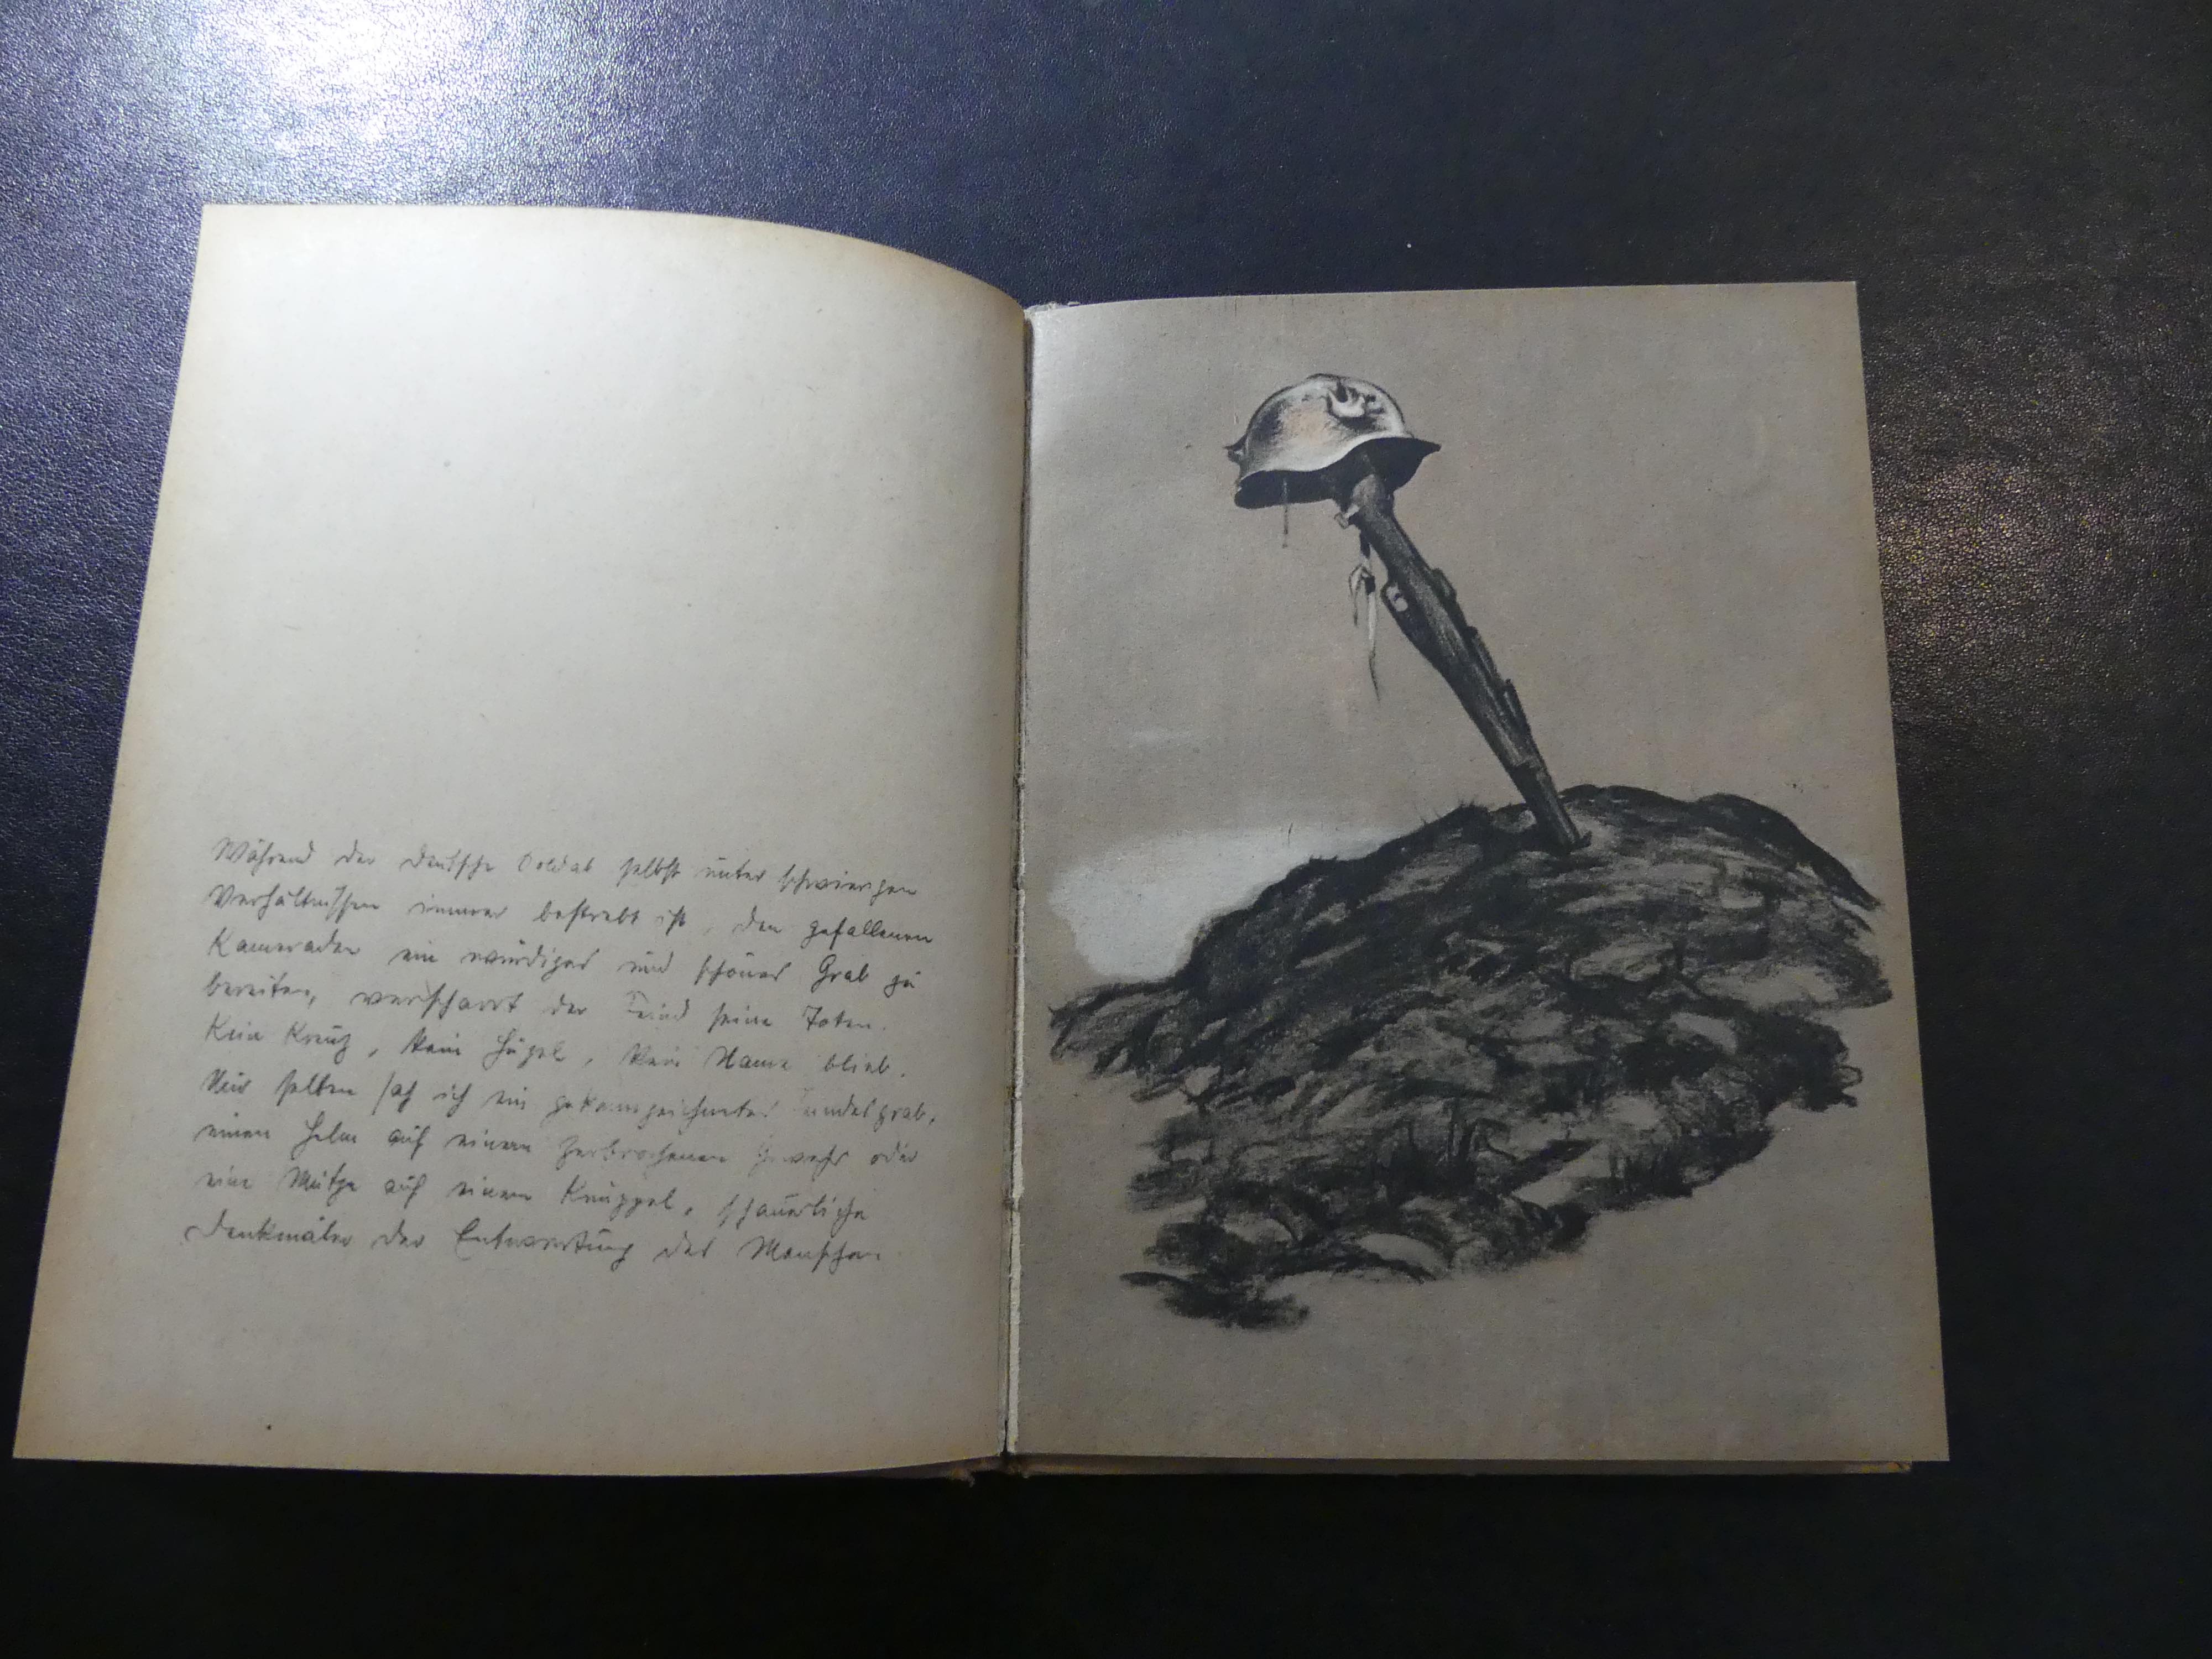 Während der deutsche Soldat selbst unter schwierigen
Verhältnissen immer bestrebt ist, den gefallenen
Kameraden ein würdiges und schönes Grab zu
bereiten, verscharrt der Feind seine Toten.
Kein Kreuz, kein Hügel, kein Name blieb.
Nur selten sah ich ein gekennzeichnetes
einen Helm auf einem zerbrochenen Gewehr oder
eine Mütze auf einem Knüppel, schauerliche
Denkmäler der Entwertung des Menschen.